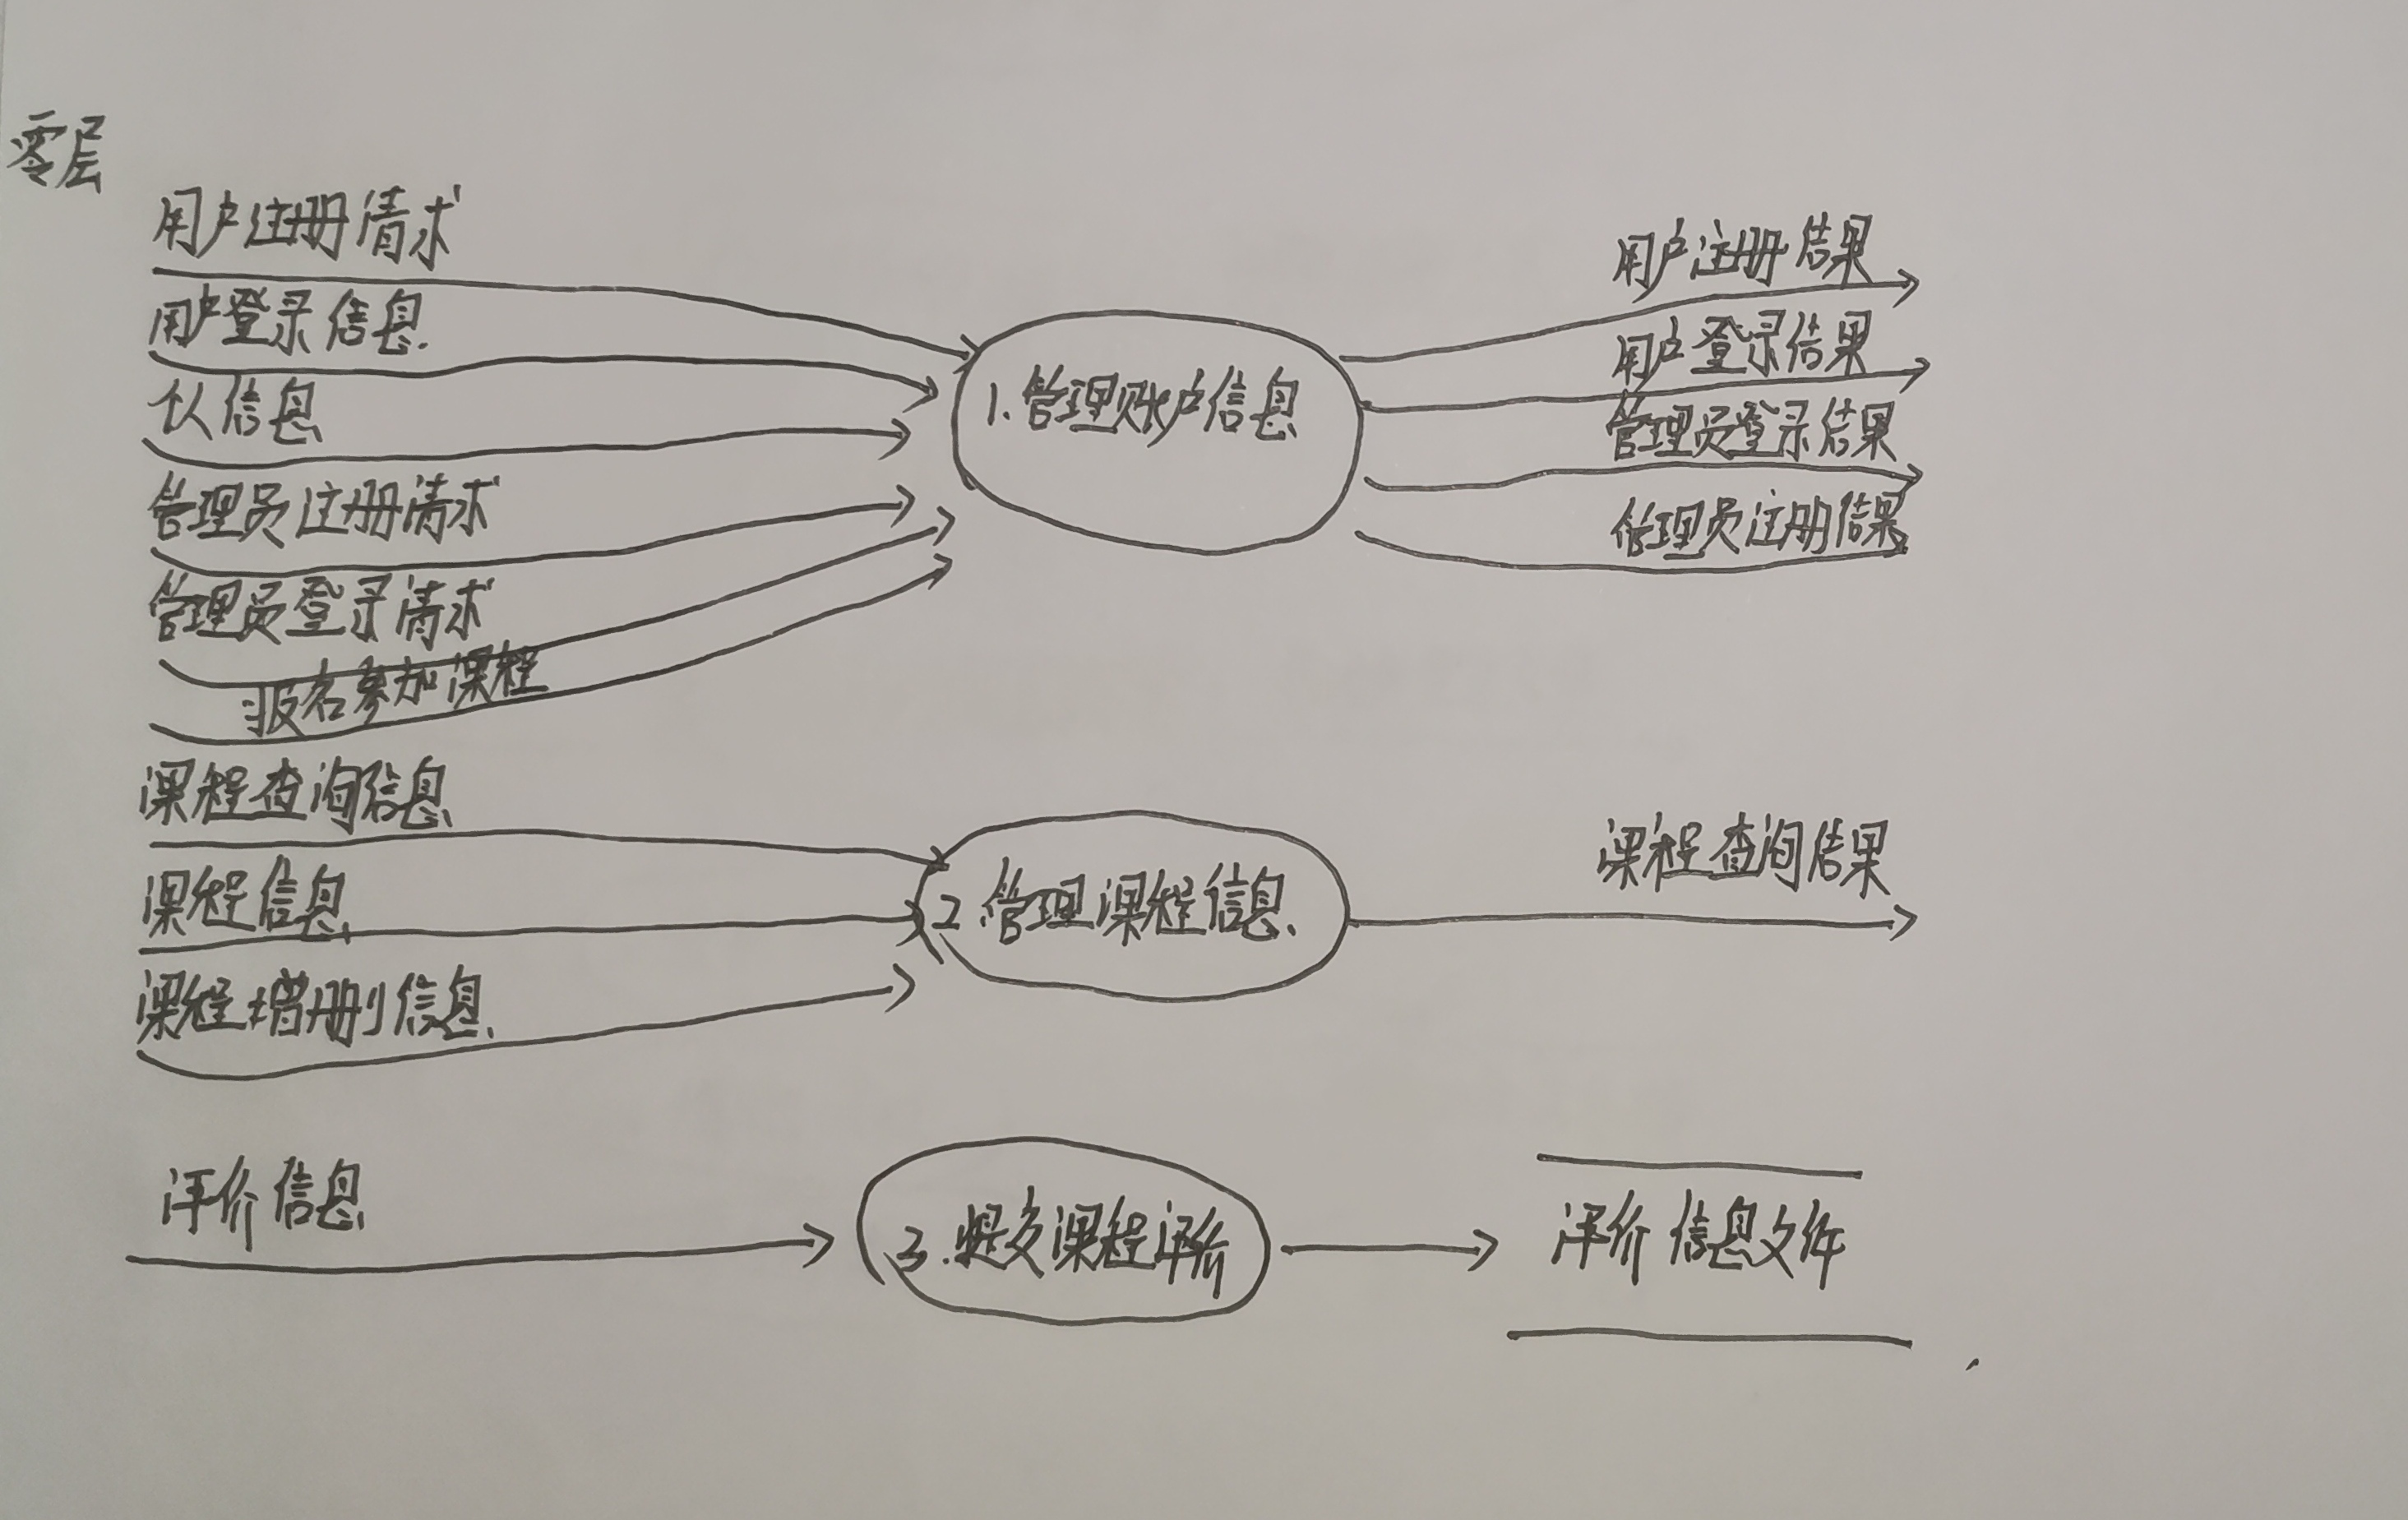 零层
用户注册请求
用户登录信息
个人信息
管理员注册请求
管理员登录请求
报名参加课程
1.管理账户信息
用户注册结果
用户登录结果
管理员登录结果
管理员注册结果
课程查询信息
课程信息
课程增删信息
2.管理课程信息
课程查询结果
评价信息
3.提交课程评价
评价信息文件